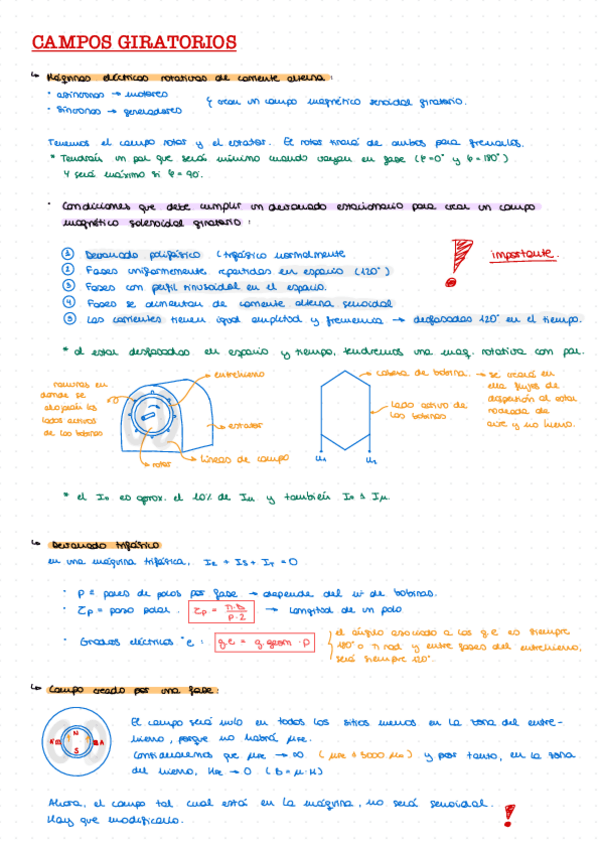 CAMPOS GIRATORIOS
↳ Máquinas eléctricas rotativas de corriente alterna:
· asíncronas → motores
· síncronas → generadores
} crean un campo magnético senoidal giratorio.
Tenemos el campo rotor y el estator. El rotor tirará de ambos para frenarlos.
* Tendrán un par que será mínimo cuando vayan en fase (φ=0° y φ=180°)
Y será máximo si φ=90°.
· Condiciones que debe cumplir un devanado estacionario para crear un campo
magnético solenoidal giratorio:
① Devanado polifásico (trifásico normalmente
② Fases uniformemente repartidas en espacio (120°)
③ Fases con perfil sinusoidal en el espacio.
④ Fases se alimentan de corriente alterna senoidal
⑤ Las corrientes tienen igual amplitud y frecuencia → desfasadas 120° en el tiempo.
! importante.
* al estar desfasadas en espacio y tiempo, tendremos una maq. rotativa con par.
ranuras en
donde se
alojarán los
lados activos
de las bobinas
entrehierro
estator
líneas de campo
rotor
cabeza de bobina.
lado activo de
las bobinas
→ se creará en
ella flujos de
dispersión al estar
rodeada de
aire y no hierro.
* el I₀ es aprox. el 10% de
y también
↳ Devanado trifásico
en una máquina trifásica, I_R + I_S + I_T = 0
· p = pares de polos por fase → depende del nº de bobinas.
· τp = paso polar. τp = π·D / p·2 → longitud de un polo
· Grados eléctricos °e: g.e = g.geom · p
el ángulo asociado a los g.e es siempre
180° o π rad y entre fases del entrehierro,
será siempre 120°.
↳ Campo creado por una fase:
N
S
El campo será nulo en todos los sitios menos en la zona del entre-
hierro, porque no habrá
Consideraremos que μFe → ∞ (μFe ≈ 5000 μ₀) y por tanto, en la zona
del hierro, HFe → 0 (B=μ·H)
Ahora, el campo tal cual está en la máquina, no será senoidal.
Hay que modificarlo.
!